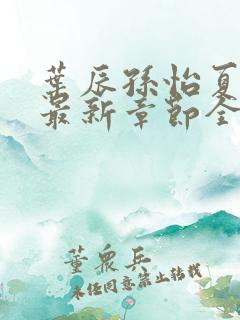 叶辰孙怡夏
最新章节全
董众兵
未经同意禁止转载